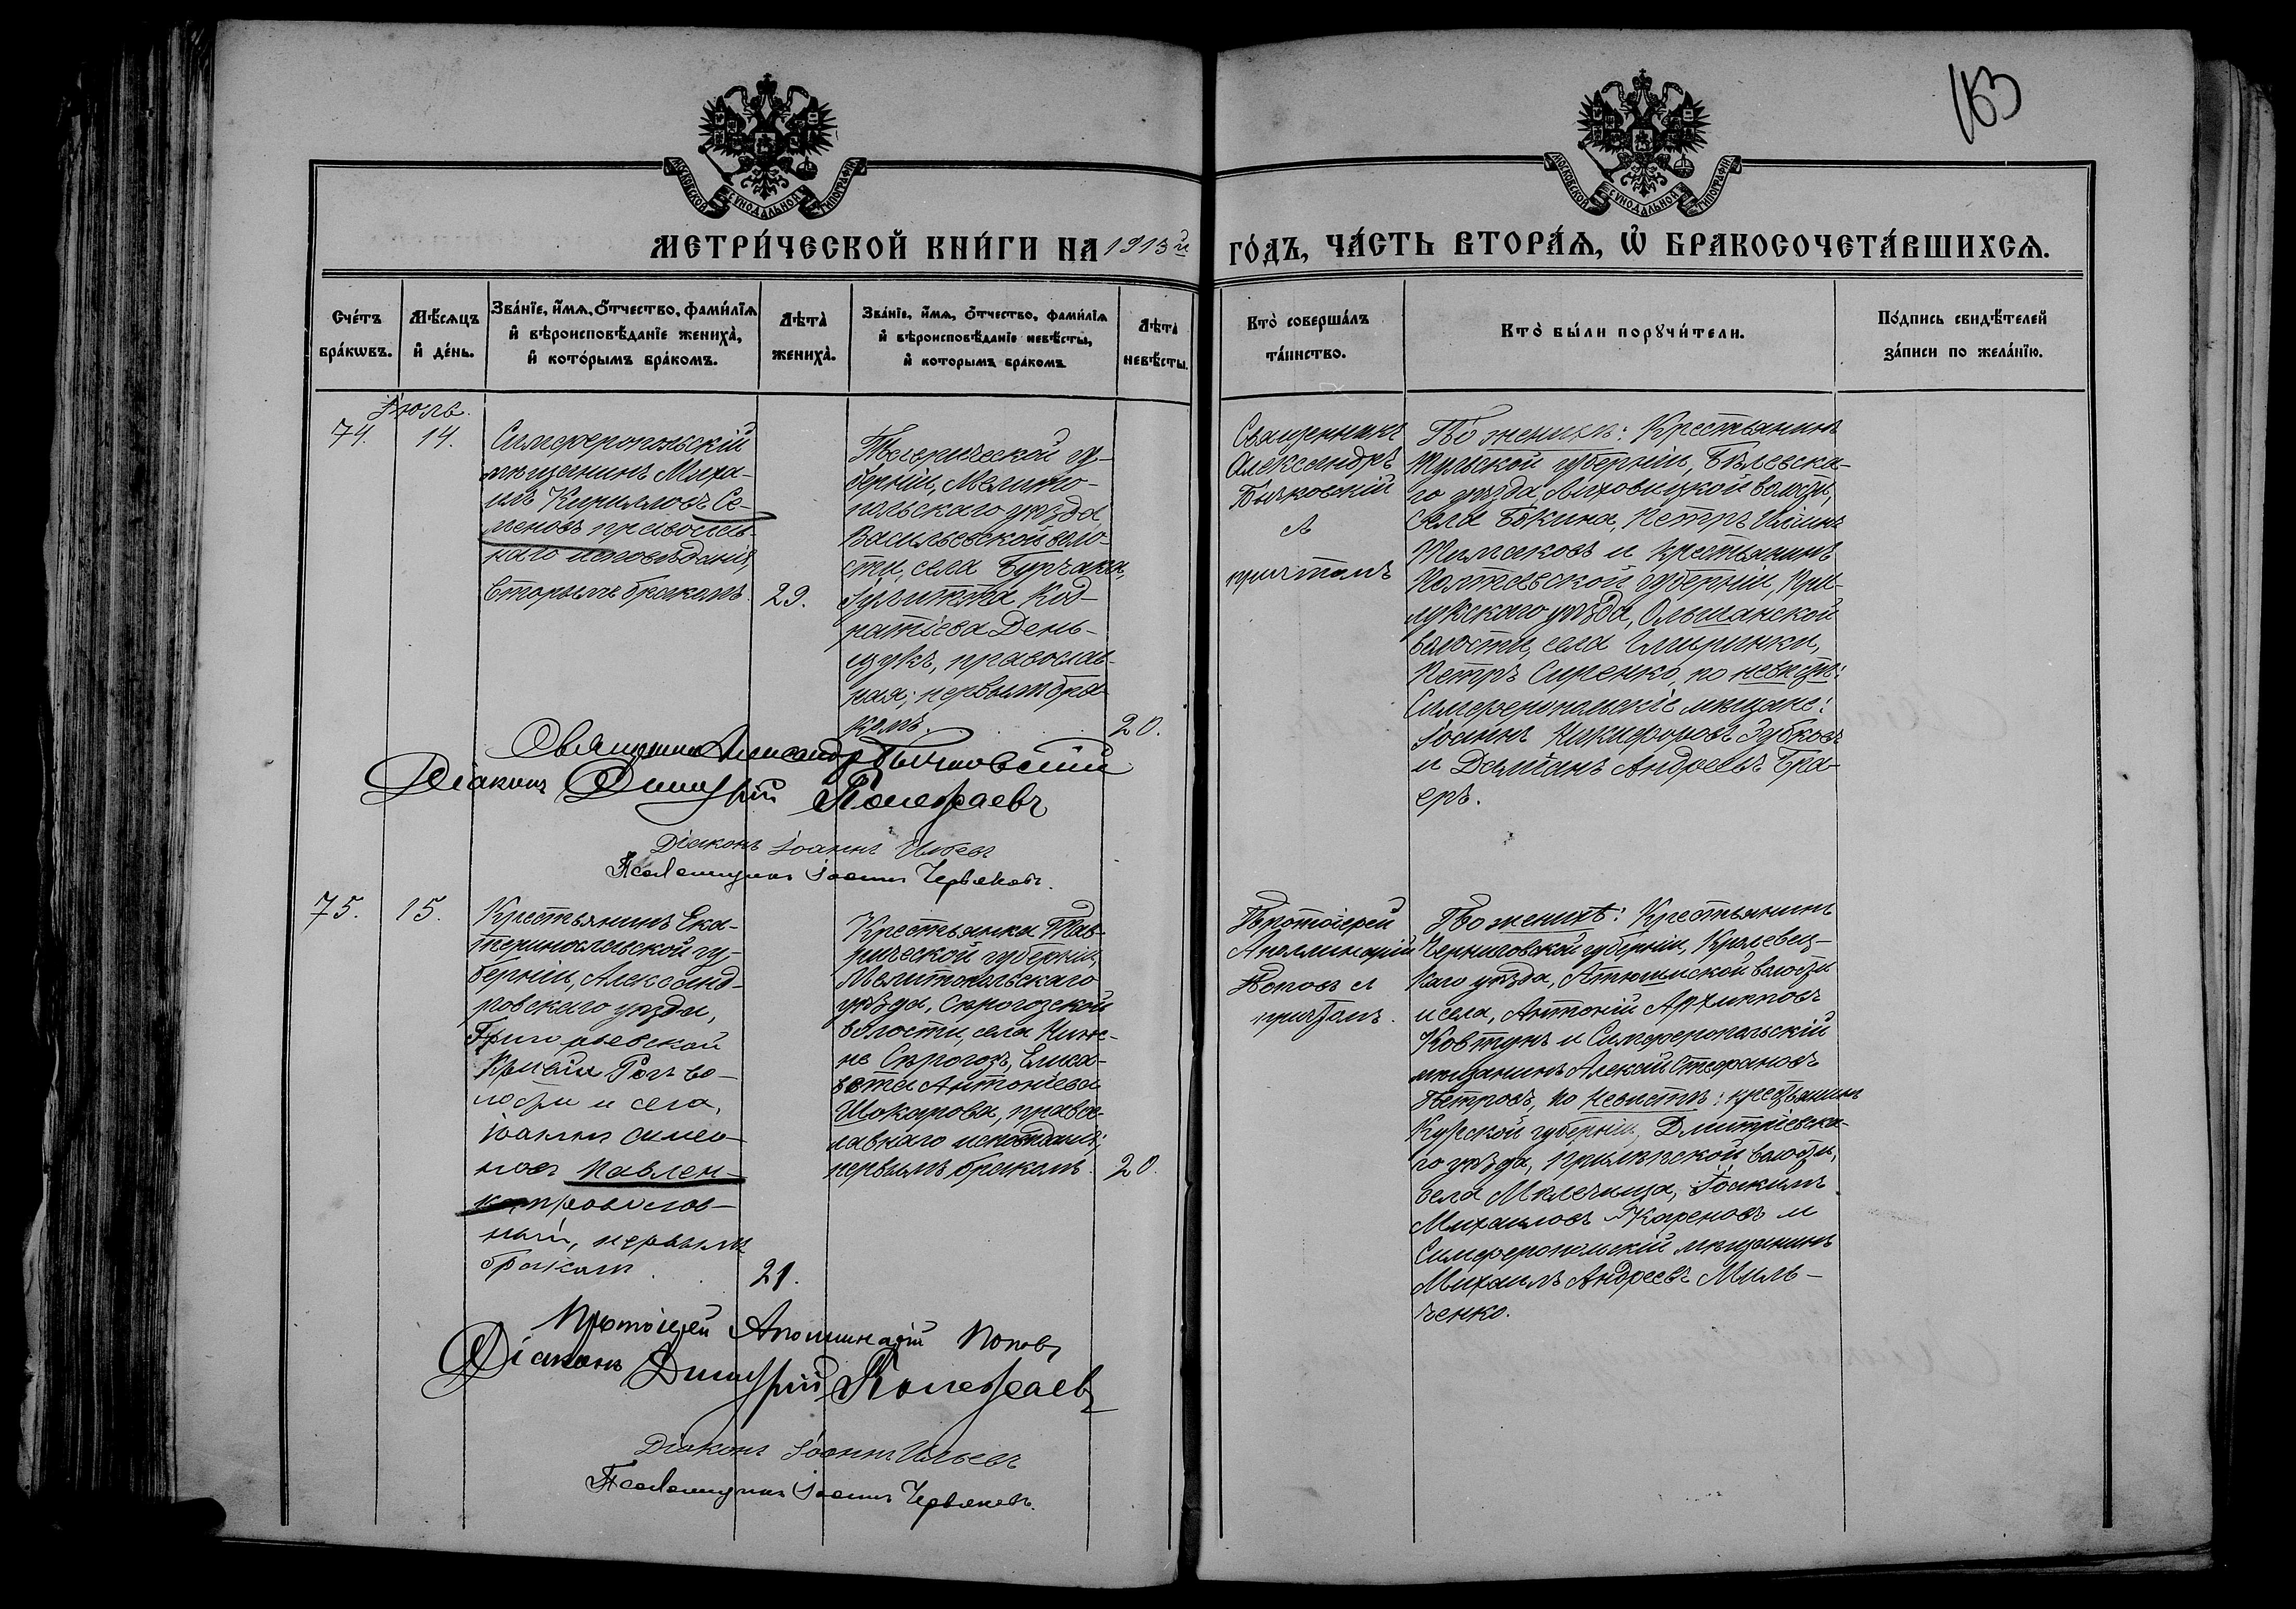 163
МОСКОВСКОЙ СѴНОДАЛЬНОЙ ТИПОГРАФІИ
МОСКОВСКОЙ СѴНОДАЛЬНОЙ ТИПОГРАФІИ
МЕТРИ́ЧЕСКОЙ КНИ́ГИ НА 1913 й
ГО́ДЪ, ЧА́СТЬ ВТОРА́Ѧ, Ѿ БРАКОСОЧЕТА́ВШИХСѦ.
Сче́тъ
бра́кωвъ.
Мѣ́сѧцъ
и҆ де́нь.
Зва́нїе, и҆́мѧ, ѻ҆́тчество, фами́лїѧ
и҆ вѣроисповѣ́данїе жениха̀,
и҆ кото́рымъ бра́комъ.
Лѣта̀
жениха̀.
Зва́нїе, и҆́мѧ, ѻ҆́тчество, фами́лїѧ
и҆ вѣроисповѣ́данїе невѣ́сты,
и҆ кото́рымъ бра́комъ
Лѣта̀
невѣ́сты.
Кто̀ соверша́лъ
та́инство.
Кто̀ бы́ли порꙋчи́тели.
По́дпись свидѣ́телей
за́писи по жела́нїю.
Іюль.
74.
14.
Симферопольскій
мѣщанинъ Миха-
илъ Кирилловъ Се-
меновъ православ-
наго исповѣданія,
вторымъ бракомъ.
29.
Таврической гу-
берніи, Мелито-
польскаго уѣзда,
Васильевской воло-
сти, села Бурчака,
Іулитта
День-
щукъ, православ-
ная, первымъ бра-
комъ.
20.
Священникъ
Александръ
Бычковскій
съ
причтомъ
По женихѣ: Крестьянинъ
Тульской губерніи, Бѣлевска-
го уѣзда, волости,
села Бокина, Петръ Ильинъ
и крестьянинъ
Полтавской губерніи, При-
лукскаго уѣзда, Ольшанской
волости, села
Петръ Сиренко, по невѣстѣ:
Симферопольскіе мѣщане:
Іоаннъ Никифоровъ Зубковъ
и Даміанъ Андреевъ Бра-
еръ.
Священникъ Александръ Бычковскій
Діаконъ Димитрій Полежаевъ
Діаконъ Іоаннъ Ильевъ
Псаломщикъ Іоаннъ Червяковъ.
75.
15.
Крестьянинъ Ека-
теринославской гу-
берніи, Александ-
ровскаго уѣзда,
Григорьевской
Рогъ во-
лости и села,
Іоаннъ Симео-
новъ Павлен-
ко, православ-
ный, первымъ
бракомъ.
21.
Крестьянка Тав-
рической губерніи,
Мелитопольскаго
уѣзда, Сѣрогозской
волости, села Ниж-
не Сѣрогозъ, Елиса-
вета Антоніева
Шокарова, правос-
лавнаго исповѣданія;
первымъ бракомъ.
20.
Протоіерей
Аполлинарій
Поповъ съ
причтомъ.
По женихѣ: Крестьянинъ
Черниговской губерніи, Кролевец-
каго уѣзда, Атюшской волости
и села, Антоній Архипповъ
Ковтунъ и Симферопольскій
мѣщанинъ Алексій Стефановъ
Петровъ, по невѣстѣ: крестьянинъ
Курской губерніи, Дмитріевска-
го уѣзда, волости,
села Іоакимъ
Михаиловъ Кареновъ и
Симферопольскій мѣщанинъ
Михаилъ Андреевъ Миль-
ченко.
Протоіерей Аполлинарій Поповъ
Діаконъ Димитрій Полежаевъ
Діаконъ Іоаннъ Ильевъ
Псаломщикъ Іоаннъ Червяковъ.